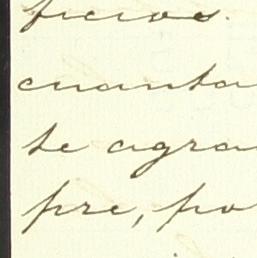 ficios.
cuanta
te agra
pre, po